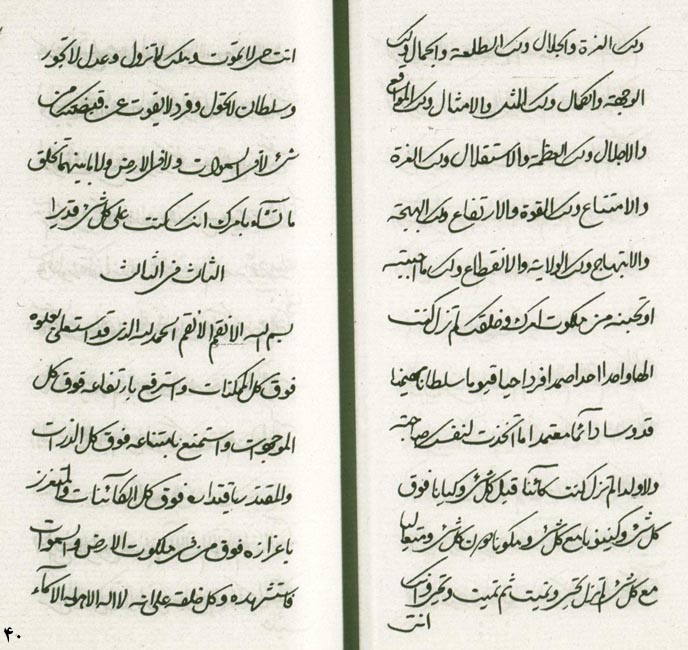 ولك العزة والجلال ولك الطلعة والجمال ولك
الوجهة والكمال ولك المثل والامثال ولك المواقع
والاجلال ولك العظمة والاستقلال ولك العزة
والامتناع ولك القوة والارتفاع ولك البهجة
والابتهاج ولك الولاية والانقطاع ولك ما احببته
او تحبنه من ملكوت امرك وخلقك لم تزل كنت
الها واحدا احدا صمدا فردا حيا قيوما سلطانا مهيمنا
قدوسا دائما معتمدا ما اتخذت لنفسك صاحبة
ولا ولدا لم تزل كنت كائنا قبل كل شئ وكيانا فوق
كل شئ وكينونا مع كل شئ ومتعاليا
مع كل شئ لم تزل تحيي وتميت ثم تميت وتحيي وانك
انت
انت حي لا يموت وملك لا تزول وعدل لا تجور
وسلطان لا تحول وفرد لا يفوت عن قبضتك من
شئ لا في السموات ولا في الارض ولا ما بينهما تخلق
ما تشاء بامرك انك كنت على كل شئ قديرا
الثالث في الثالث
بسم الله الاقهم الاقهم الحمد لله الذي قد استعلى بعلوه
فوق كل الممكنات واسترفع بارتفاعه فوق كل
الموجودات واستمنع بامتناعه فوق كل الذرات
والمقتدر باقتداره فوق كل الكائنات والمتعزز
باعزازه فوق من في ملكوت الارض والسموات
فاستشهده وكل خلقه على انه لا اله الا هو له الاسماء
۴۰